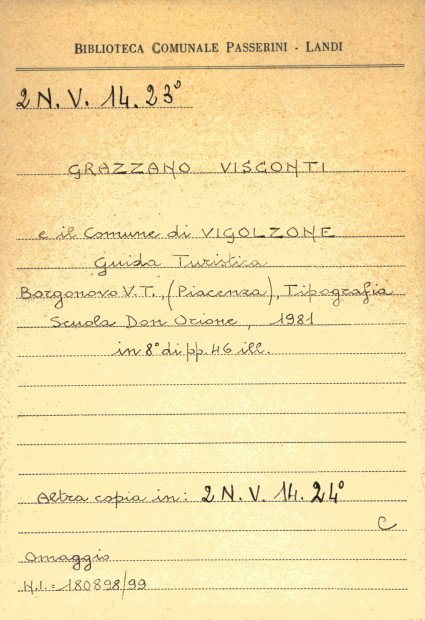 BIBLIOTECA COMUNALE PASSERINI - LANDI
2 N. V. 14. 23°
GRAZZANO VISCONTI
e il Comune di VIGOLZONE
Guida Turistica
Borgonovo V.T., (Piacenza), Tipografia
Scuola Don Orione, 1981
in 8° di pp. 46 ill.
Altra copia in: 2 N. V. 14. 24°
C
Omaggio
N.I.= 180898/99